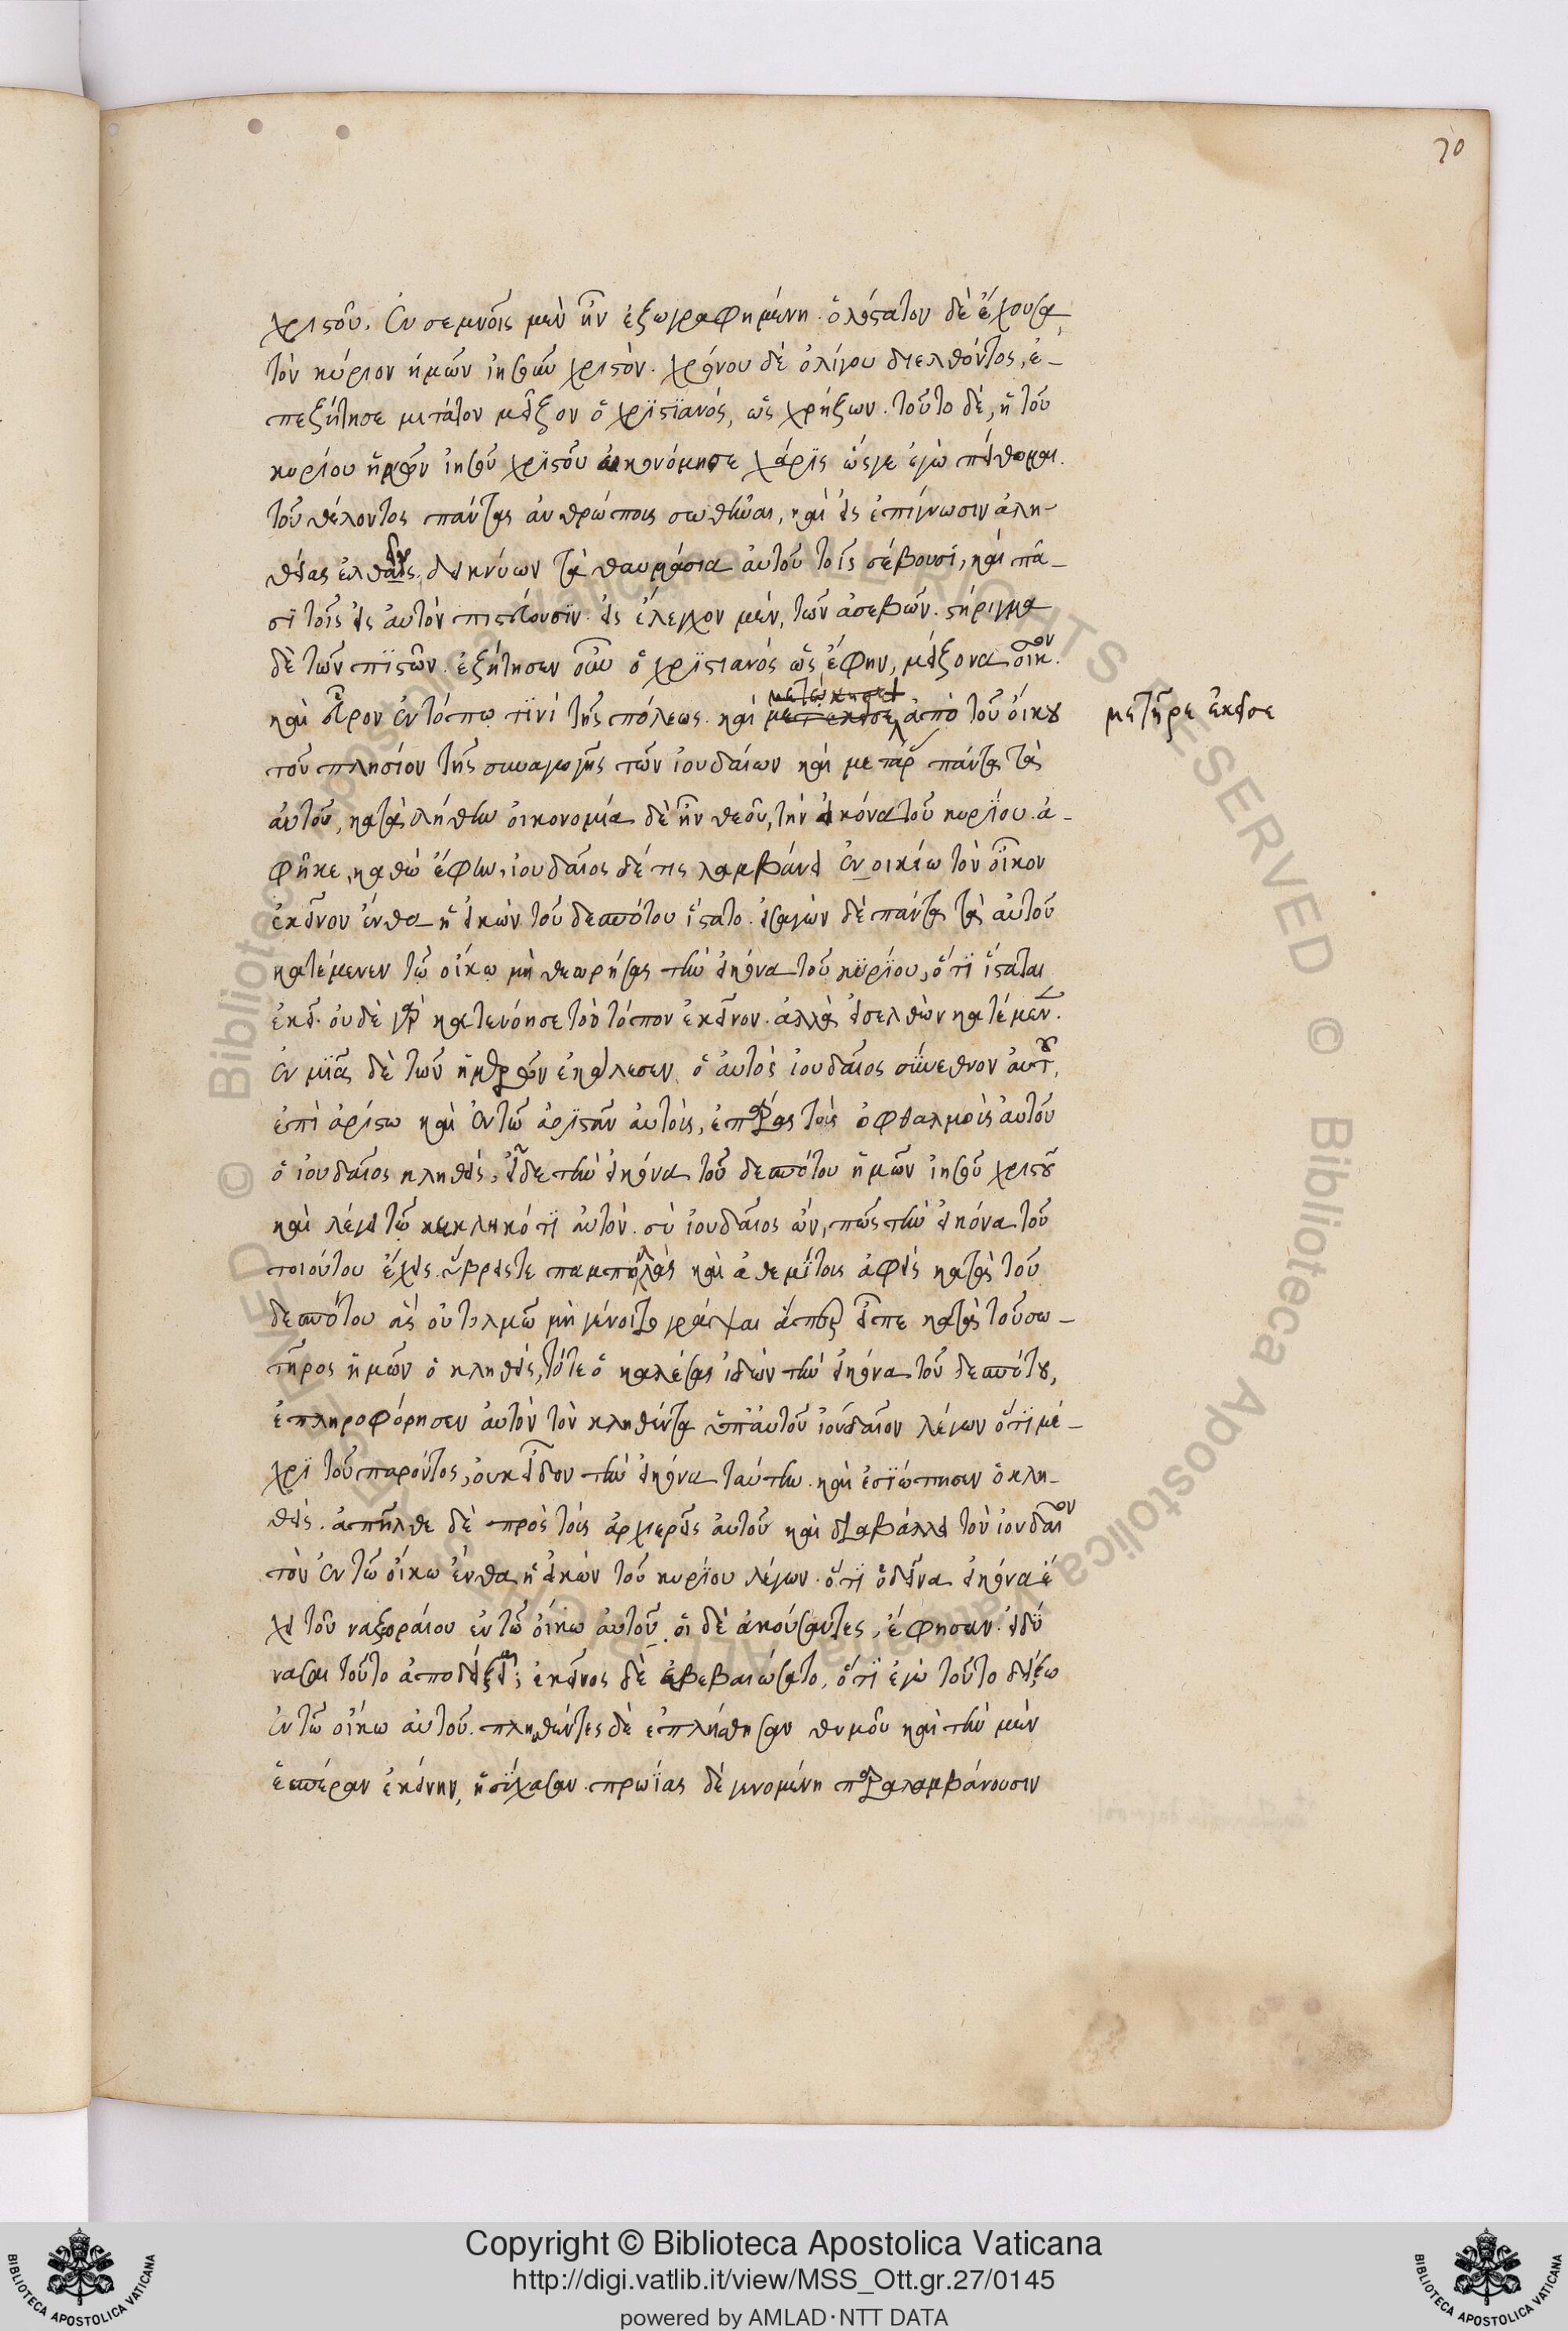 70
χριστοῦ. ἐν σεμνοῖς μὲν ἦν ἐζωγραφημένη. ὁλόστατον δὲ ἔχουσα
τὸν κύριον ἡμῶν ἰησοῦν χριστὸν. χρόνου δὲ ὀλίγου διελθόντος, ἐ-
πεζήτησε μιτάτον μεῖζον ὁ χρϊστϊανός, ὡς χρήζων. τοῦτο δὲ, ἡ τοῦ
κυρίου ἡμῶν ἰησοῦ χρϊστοῦ ὠκονόμησε χάρϊς ὥς γε ἐγὼ πείθομαι.
τοῦ θέλοντος πάντας ἀνθρώπους σωθῆναι, καὶ εἰς ἐπίγνωσιν ἀλη-
θείας ἐλθεῖν. δεικνύων τὰ θαυμάσια αὐτοῦ τοῖς σέβουσί, καὶ πᾶ-
σϊ τοῖς εἰς αὐτὸν πιστεύουσϊν. εἰς ἔλεγχον μὲν, τῶν ἀσεβῶν. στήριγμα
δὲ τῶν πϊστῶν. ἐζήτησεν οὖν ὁ χρϊστιανός ὡς ἔφην, μείζονα οἶκον.
καὶ εὗρον ἐν τόπω τϊνὶ τῆς πόλεως. καὶ ἀπὸ τοῦ οἴκου
μετῆρε ἐκεῖσε
τοῦ πλησίον τῆς συναγωγῆς τῶν ἰουδαίων καὶ μετάρας πάντα τὰ
αὐτοῦ, κατὰ λήθην οἰκονομία δὲ ἦν θεοῦ, τὴν εἰκόνα τοῦ κυρϊου. ἀ-
φῆκε, καθὼ ἔφην, ἰουδαῖος δέ τις λαμβάνει ἐν οικείω τὸν οἶκον
ἐκεῖνον ἔνθα ἡ εἰκὼν τοῦ δεσπότου ἵστατο. εἰσαγὼν δὲ πάντα τὰ αὐτοῦ
κατέμενεν τῶ οἴκω μὴ θεωρήσας τὴν εἰκόνα τοῦ κϋρϊου, ὅτϊ ἵσταται
ἐκεῖ. οὐδὲ γὰρ κατενόησε τὸν τόπον ἐκεῖνον. ἀλλὰ εἰσελθὼν κατέμεν.
ἐν μϊᾶ δὲ τῶν ἡμερῶν ἐκάλεσεν ὁ αὐτὸς ἰουδαῖος σύνεθνον αὐτοῦ,
ἐπὶ ἀρίστω καὶ ἐν τῶ ἀρϊστᾶν αὐτοὺς, ἐπάρας τοὺς ὀφθαλμοὺς αὐτοῦ
ὁ ἰουδαῖος κληθεὶς, εἶδε τὴν εἰκόνα τοῦ δεσπότου ἡμῶν ἰησοῦ χριστοῦ
καὶ λέγει τῶ κεκληκότϊ αὐτὸν. σὺ ἰουδαῖος ὢν, πῶς τὴν εἰκόνα τοῦ
τοιούτου ἔχεις. ὕβρεις τε παμπόλλας καὶ ἀθεμΐτους ἀφεὶς κατὰ τοῦ
δεσπότου ἃς οὐ τολμῶ μὴ γένοιτο γράψαι ἅσπερ εἶπε κατὰ τοῦ σω-
τῆρος ἡμῶν ὁ κληθεὶς, τότε ὁ καλέσας ἰδὼν τὴν εἰκόνα τοῦ δεσπότου,
ἐπληροφόρησεν αὐτὸν τὸν κληθέντα ὑπ᾽ αὐτοῦ ἰουδαῖον λέγων ὅτϊ μέ-
χρϊ τοῦ παρόντος, οὐκ εἶδον τὴν εἰκόνα ταύτην. καὶ ἐσϊώπησεν ὁ κλη-
θεὶς. ἀπῆλθε δὲ πρὸς τοὺς ἀρχιερεῖς αὐτοῦ καὶ διαβάλλει τὸν ἰουδαῖον
τὸν ἐν τῶ οἴκω ἔνθα ἡ εἰκὼν τοῦ κυρϊου λέγων. ὅτϊ ὁ δεῖνα εἰκόνα ἔ
χει τοῦ ναζοραίου ἐν τῶ οἴκω αὐτοῦ. οἱ δὲ ἀκούσαντες, ἔφησαν. εἰ δύ
νασαι τοῦτο ἀποδεῖξαι; ἐκεῖνος δὲ ἐβεβαιώσατο, ὅτϊ ἐγὼ τοῦτο δείξω
ἐν τῶ οἴκω αὐτοῦ. πλησθέντες δὲ ἐπλήσθησαν θυμοῦ καὶ τὴν μὲν
ἑσπέραν ἐκείνην, ἡσΰχασαν. πρωΐας δὲ γενομένη παραλαμβάνουσιν
Copyright © Biblioteca Apostolica Vaticana
http://digi.vatlib.it/view/MSS_Ott.gr.27/0145
powered by AMLAD·NTT DATA